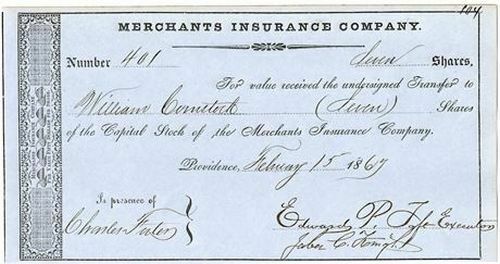 104
MERCHANTS INSURANCE COMPANY.
Number 401 Seven Shares,
For value received the undersigned Transfer to
William Comstock (Seven) Shares
of the Capital Stock of the Merchants Insurance Company.
Providence, Februy 15 1867
In presence of
Charles Foster
Edward P. Executor
Jabez C. Knight